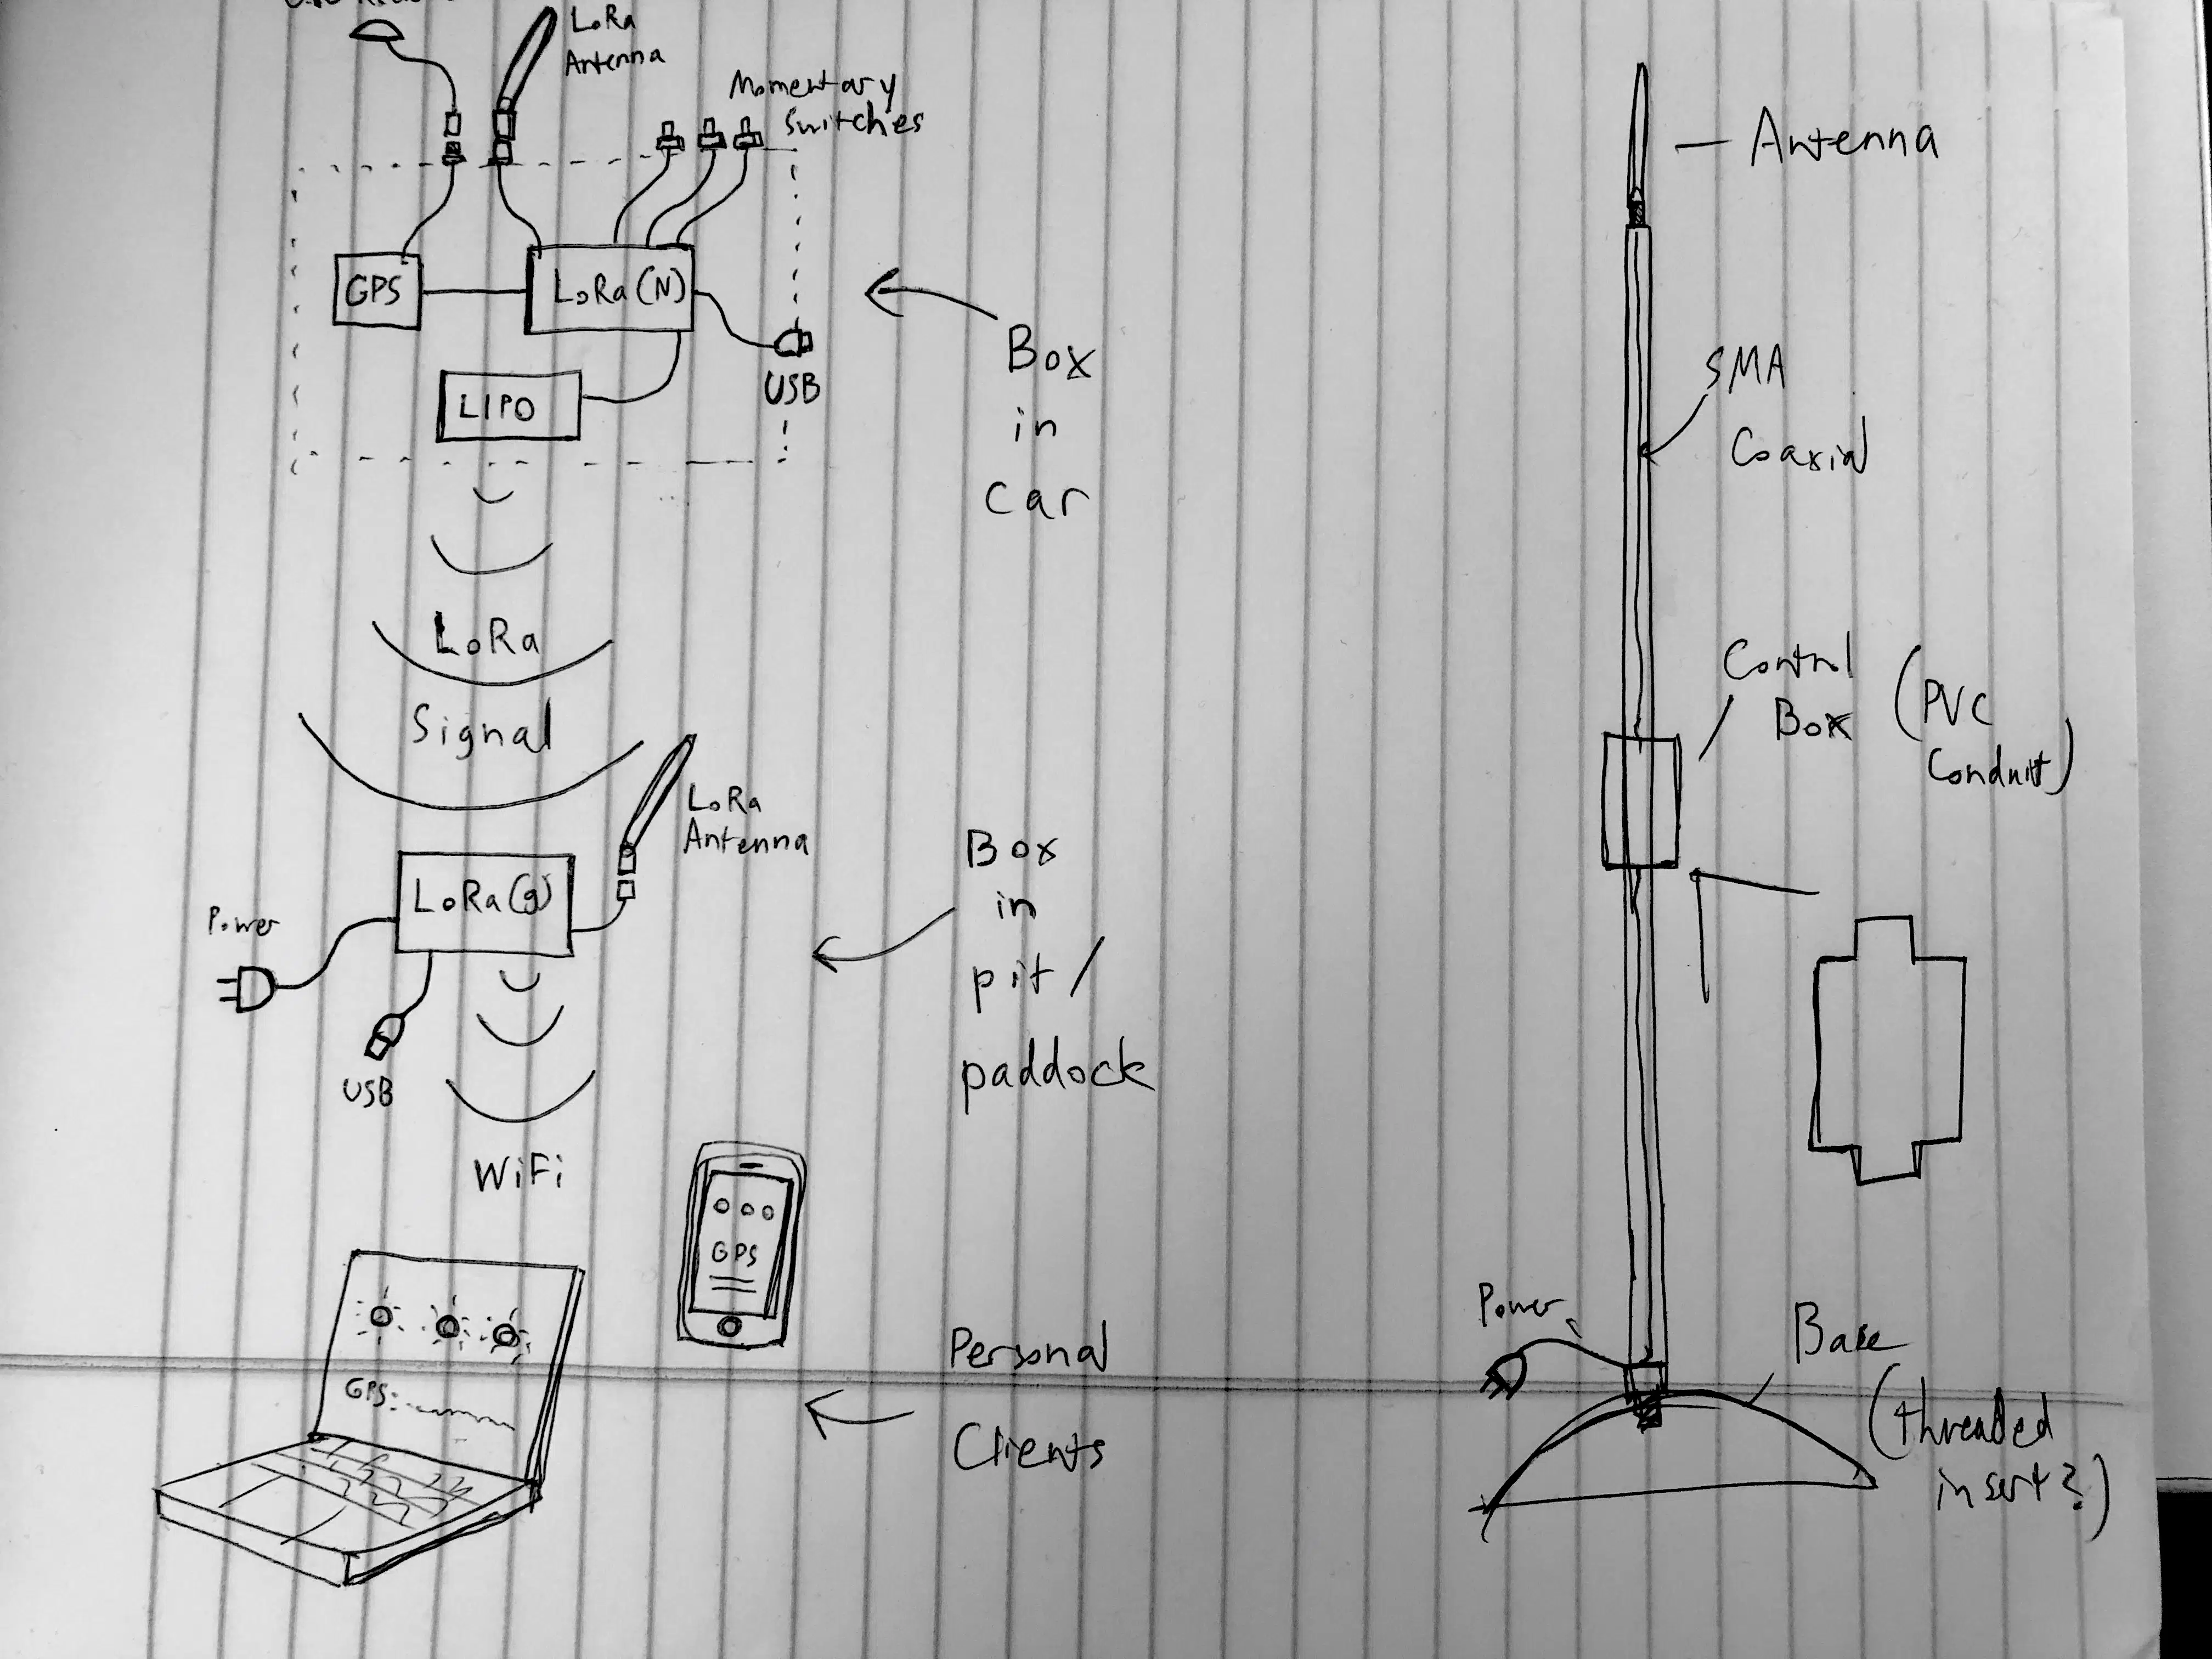 LoRa
Antenna
Momentary
Switches
GPS
LoRa (N)
LIPO
USB
Box
in
car
LoRa
Signal
LoRa
Antenna
LoRa (g)
Power
USB
Box
in
pit /
paddock
WiFi
GPS
GPS:
Personal
Clients
Antenna
SMA
Coaxial
Control
Box
(PVC
Conduit)
Power
Base
(threaded
insert?)